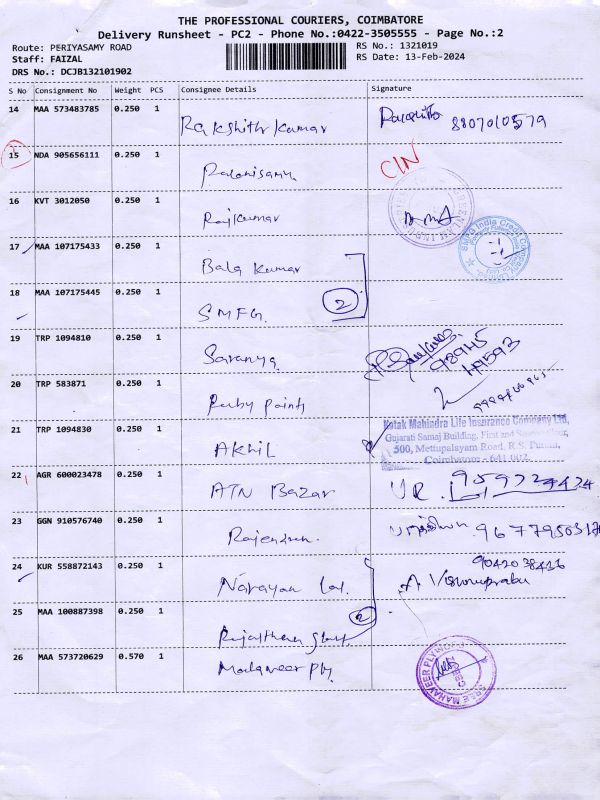 THE PROFESSIONAL COURIERS, COIMBATORE
Delivery Runsheet - PC2 - Phone No.:0422-3505555 - Page No.:2
Route: PERIYASAMY ROAD
RS No.: 1321019
Staff: FAIZAL
RS Date: 13-Feb-2024
DRS No.: DCJB132101902
S No Consignment No Weight PCS Consignee Details Signature
14 MAA 573483785 0.250 1 Rakshith Kumar 8807010579
15 NDA 905656111 0.250 1 Palanisamy CIN
16 KVT 3012050 0.250 1 Rajkumar
17 MAA 107175433 0.250 1 Bala Kumar
2
18 MAA 107175445 0.250 1 SMFG.
19 TRP 1094810 0.250 1 Saranya. 98945
49593
20 TRP 583871 0.250 1 Ruby points
21 TRP 1094830 0.250 1 Akhil
Kotak Mahindra Life Insurance Company Ltd,
Gujarati Samaj Building, First and Floor,
500, Mettupalayam Road, R.S. Puram,
Coimbatore - 641 002
22 AGR 600023478 0.250 1 ATN Bazar
23 GGN 910576740 0.250 1 Rajendran.
24 KUR 558872143 0.250 1 Narayan Lal. 9042038416
A Vishnuprabu
2
25 MAA 100887398 0.250 1 Rajasthan
26 MAA 573720629 0.570 1 Mahaveer Ply